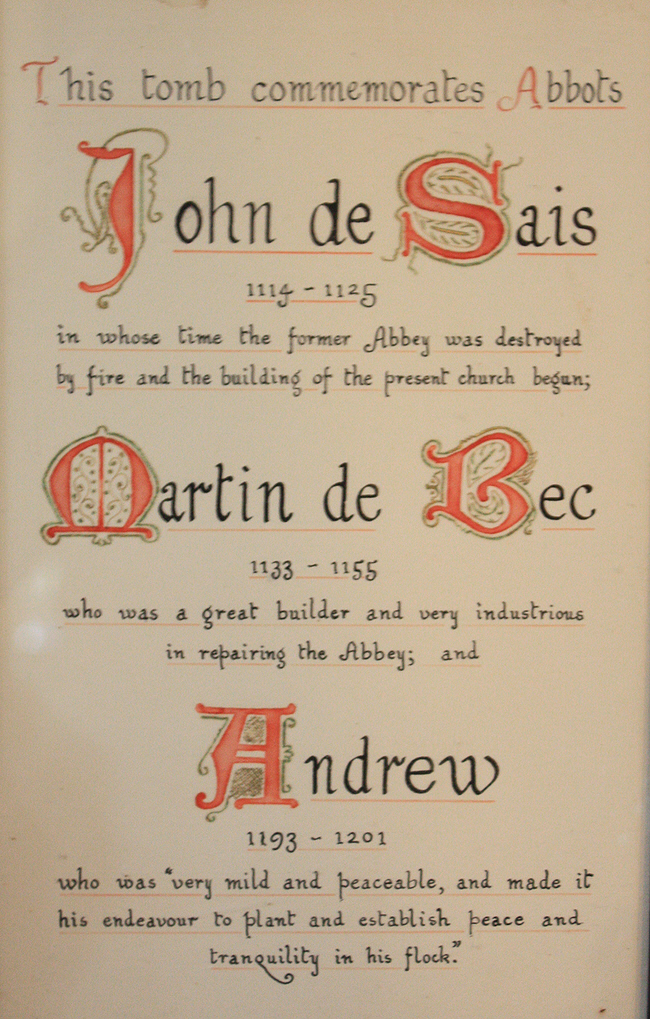 This tomb commemorates Abbots
John de Sais
1114 - 1125
in whose time the former Abbey was destroyed
by fire and the building of the present church begun;
Martin de Bec
1133 - 1155
who was a great builder and very industrious
in repairing the Abbey; and
Andrew
1193 - 1201
who was "very mild and peaceable, and made it
his endeavour to plant and establish peace and
tranquility in his flock."